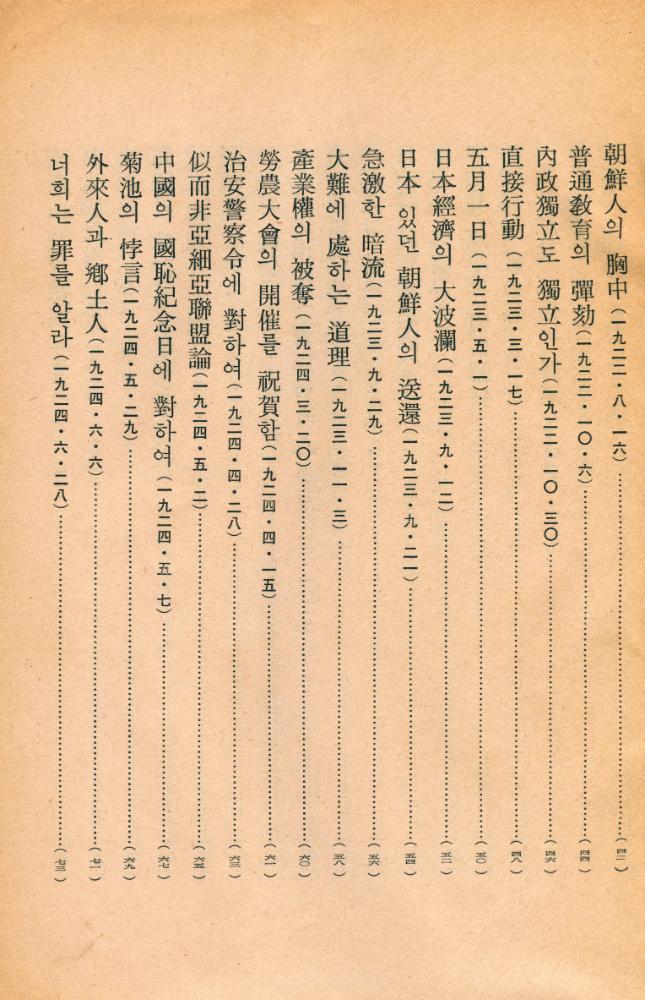 朝鮮人의 胸中(一九二二·八·一六)……(四二)
普通敎育의 彈劾(一九二二·一〇·六)……(四四)
內政獨立도 獨立인가(一九二二·一〇·三〇)……(四六)
直接行動(一九二三·三·一七)……(四八)
五月一日(一九二三·五·一)……(五〇)
日本經濟의 大波瀾(一九二三·九·一二)……(五二)
日本 있던 朝鮮人의 送還(一九二三·九·二一)……(五四)
急激한 暗流(一九二三·九·二九)……(五六)
大難에 處하는 道理(一九二三·一一·三)……(五八)
產業權의 被奪(一九二四·三·二〇)……(六〇)
勞農大會의 開催를 祝賀함(一九二四·四·一五)……(六一)
治安警察令에 對하여(一九二四·四·二八)……(六三)
似而非亞細亞聯盟論(一九二四·五·二)……(六五)
中國의 國恥紀念日에 對하여(一九二四·五·七)……(六七)
菊池의 悖言(一九二四·五·二九)……(六九)
外來人과 鄕土人(一九二四·六·六)……(七一)
너희는 罪를 알라(一九二四·六·二八)……(七三)